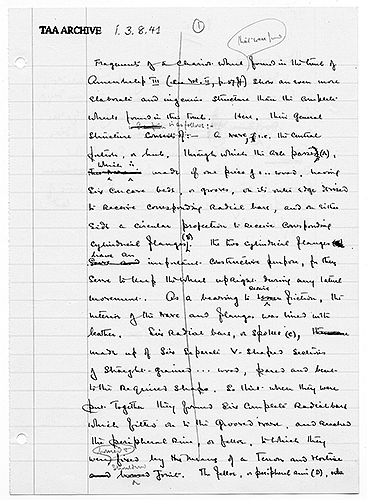 TAA ARCHIVE i.3.8.41
①
Fragments of a Chariot Wheel found in the tomb of
Amenhetep III (see Vol. II, p. 57 ff) show an even more
elaborate and ingenious structure than the complete
wheels found in this tomb. Here, their general
Structure consisted :— A nave, i.e. the central
portion, or hub, through which the axle passes (A),
which is made of one piece of wood, having
Six concave beds, or grooves, on its outer edge devised
to receive corresponding Radial bars, and on either
side a circular projection to receive corresponding
Cylindrical flanges (B). The two cylindrical flanges
have an important constructive purpose, for they
serve to keep the wheel upright during any lateral
movement. As a bearing to resist friction, the
interior of the nave and flanges was lined with
leather. Six Radial bars, or Spokes (C),
made up of Six Separate V-Shaped Sections
of Straight-grained ... wood, pared and bent
to the Required Shape. So that when they were
put together they formed Six Complete Radial bars
which fitted on to the grooved nave, and reached
the peripheral Rim, or felloe, to which they
were fixed by the means of a Tenon and Mortise
Joint. The felloe, or peripheral rim (D), was